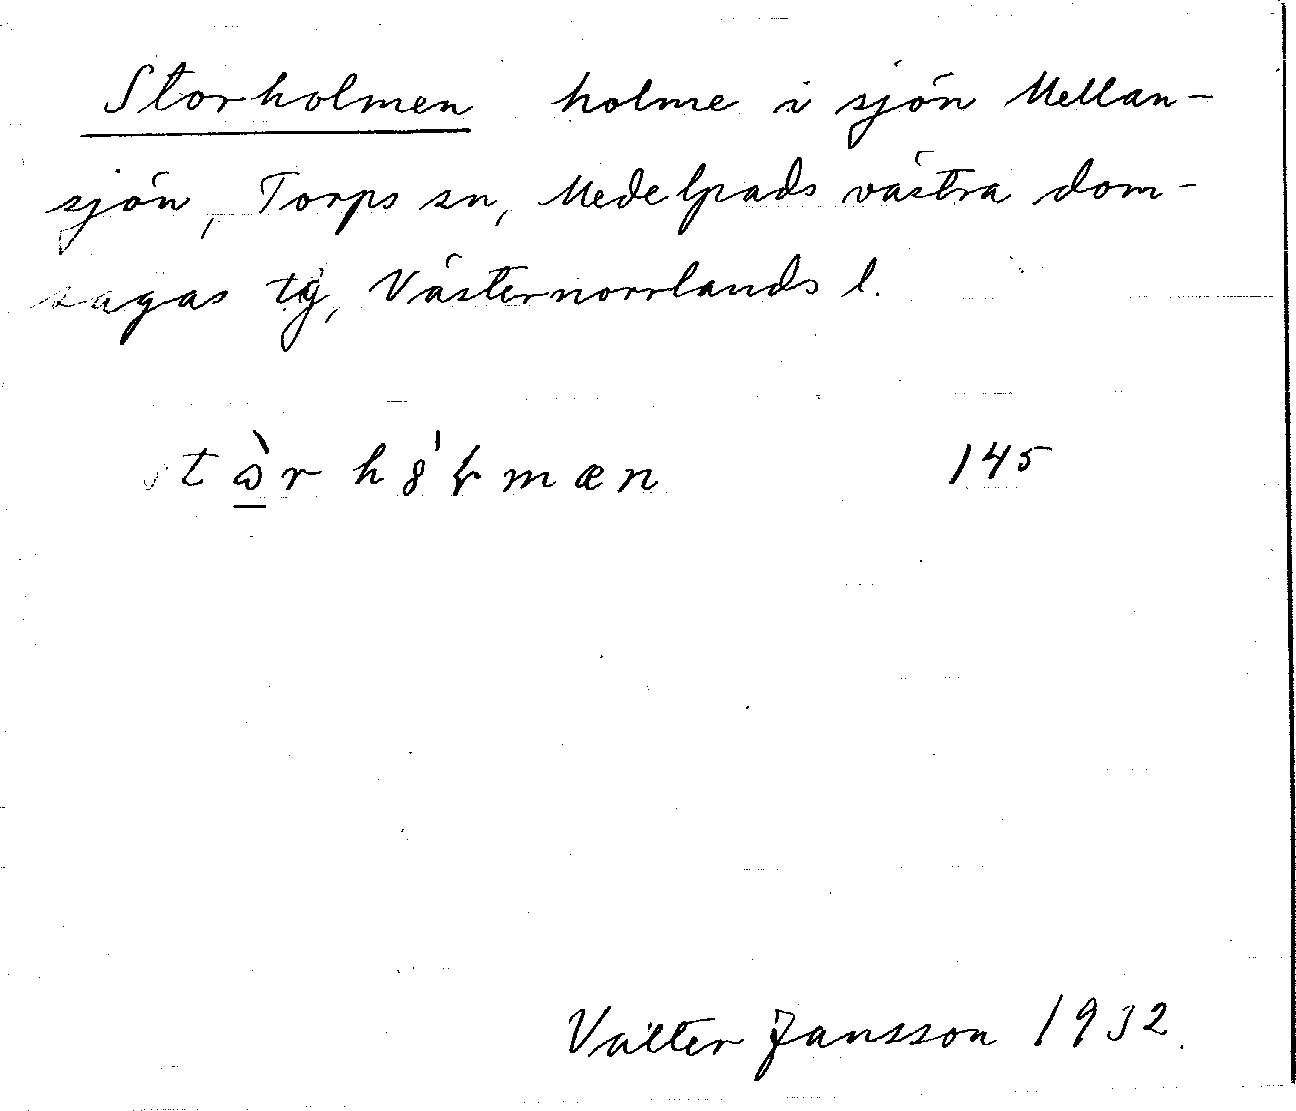 Storholmen holme i sjön Mellan-
sjön, Torps sn, Medelpads västra dom-
sagas tg, Västernorrlands l.
145
Valter Jansson 1932.